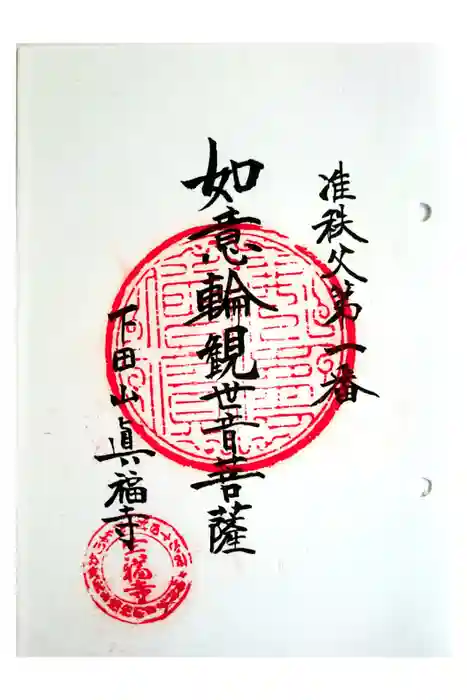 准秩父第一番
如意輪観世音菩薩
下田山眞福寺
福寺